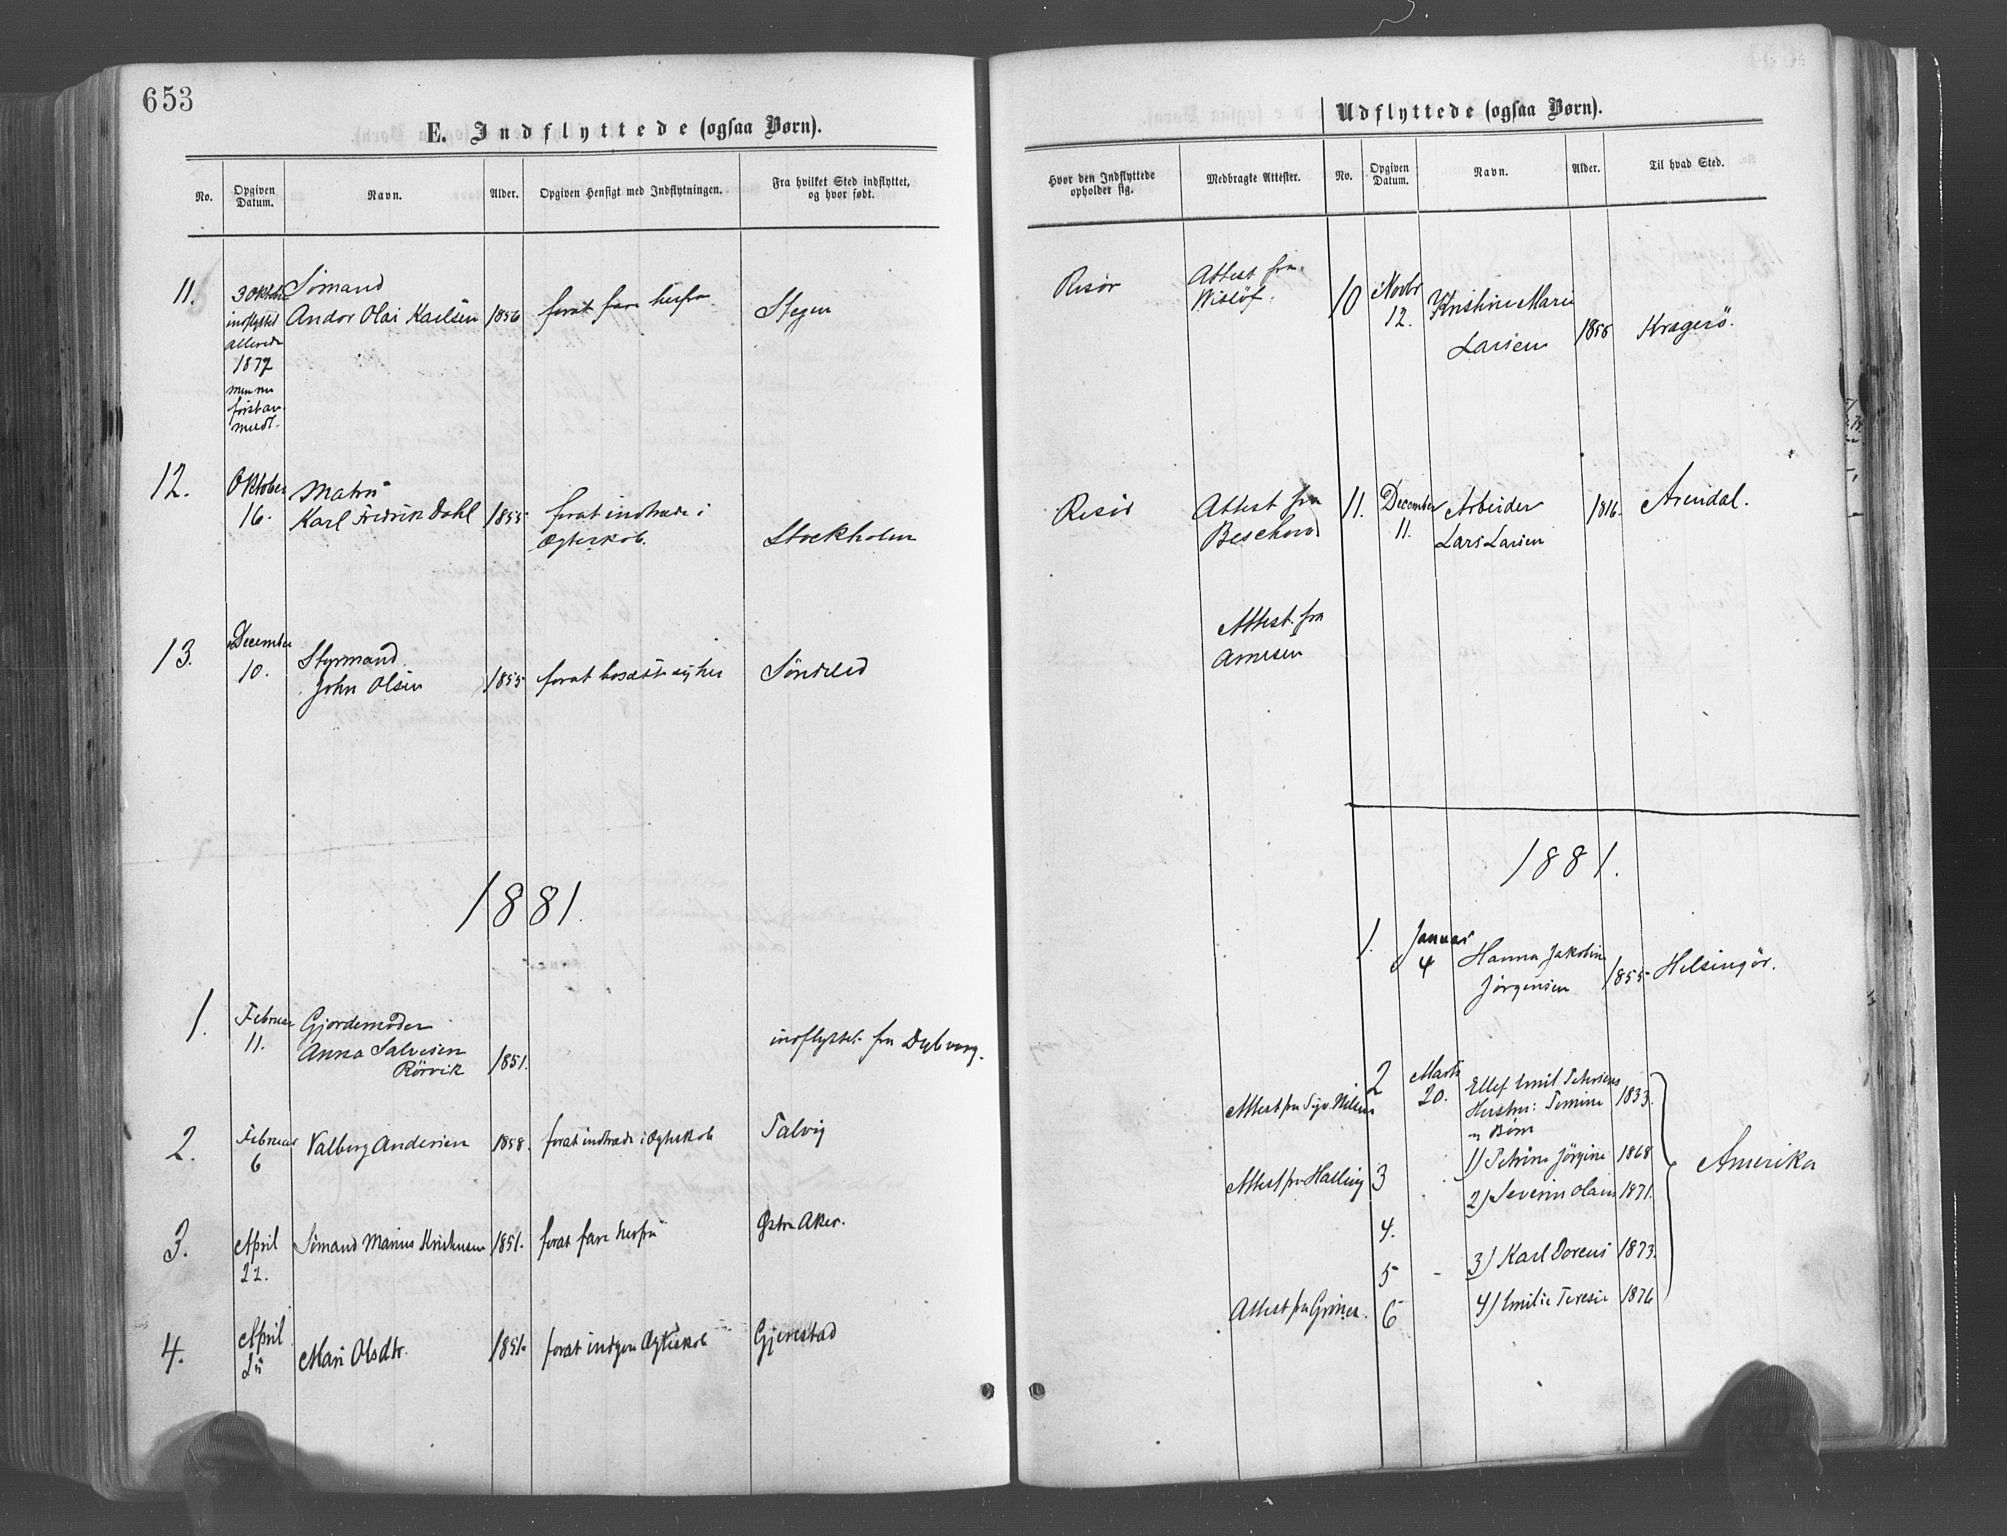 653
E. Indflyttede (ogsaa Børn).
No.
Opgiven
Datum.
Navn.
Alder.
Opgiven Hensigt med Indflytningen.
Fra hvilket Sted indflyttet,
og hvor født.
11.
3 Oktober
indflyttet
allerede
1877
men nu
først an-
meldt.
Sömand
Andor Olai Karlsen
1856
forat fare herfra
Stegen
12.
Oktober
16.
Matros
Karl Fredrik Dahl
1855
forat indtræde i
Ægteskab.
Stockholm
13.
December
10.
Styrmand
John Olsen
1855
forat bosætte sig her
Söndeled
1881.
1.
Februar
11.
Gjordemoder
Anna Salvesen
Rörvik
1851.
indflyttet fra Dybvaag.
2.
Februar
6
Valborg Andersen
1858.
forat indtræde i Ægteskab
Talvig
3.
April
22.
Sömand Marius Kristensen
1851.
forat fare herfra
Østre Aker.
4.
April
25
Mari Olsdtr.
1851.
forat indgaa Ægteskab
Gjerestad
Udflyttede (ogsaa Børn).
Hvor den Indflyttede
opholder sig.
Medbragte Attester.
No.
Opgiven
Datum.
Navn.
Alder.
Til hvad Sted.
Risör
Attest fra
Wislöf.
10
Novbr
12.
Kristine Marie
Larsen
1858
Kragerö.
Risör
Attest fra
Beschorn
11.
December
11.
Arbeider
Lars Larsen
1816.
Arendal.
Attest fra
Arnesen
1881.
1.
Januar
4
Hanna Jakobine
Jörgensen
1855
Helsingör.
Attest fra Sigv. Nilsen
2
Marts
20.
Ellef Emil Petersens
Hustru: Tomine
og Börn
1833.
Attest fra Halling
3
1) Petrine Jörgine 1868
2) Severin Olaus 1871.
4.
5
3) Karl Dorenius 1873.
Attest fra Grimes.
6
4) Emilie Teresie 1876
Amerika